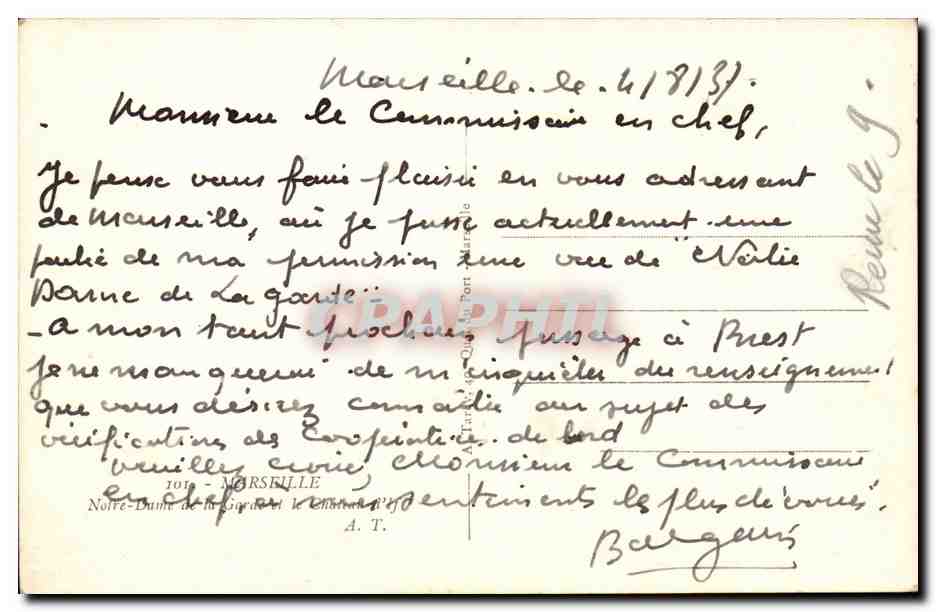 Marseille. le. 4/8/37.
Monsieur le Commissaire en chef,
Je pense vous faire plaisir en vous adressant
de Marseille, où je passe actuellement une
partie de ma permission une vue de "Notre
Dame de La garde"
- A mon tout prochain passage à Brest
je ne manquerai de m'inquiéter du renseignement
que vous désirez connaître au sujet des
vérifications des Coopératives de bord
Veuillez croire, Monsieur le Commissaire
en chef, à mes sentiments les plus dévoués.
Reçu le 9.
101 - MARSEILLE
Notre-Dame de la Garde et le Château d'If
A. T.
A. Tardy, Quai du Port, Marseille
CPAPHIL